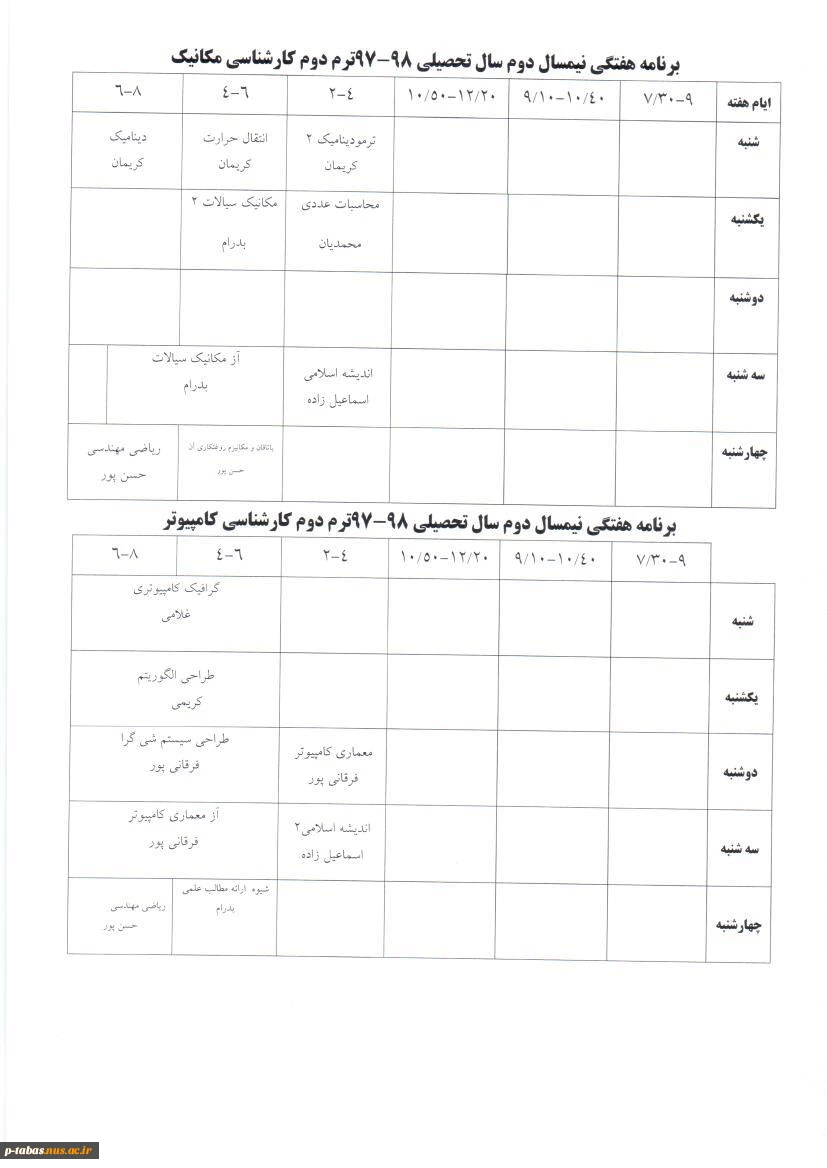 برنامه هفتگی نیمسال دوم سال تحصیلی ۹۸-۹۷ترم دوم کارشناسی مکانیک
ایام هفته ۷/۳۰-۹ ۹/۱۰-۱۰/۴۰ ۱۰/۵۰-۱۲/۲۰ ۲-۴ ۴-۶ ۶-۸
شنبه
ترمودینامیک ۲
کریمان
انتقال حرارت
کریمان
دینامیک
کریمان
یکشنبه
محاسبات عددی
محمدیان
مکانیک سیالات ۲
بدرام
دوشنبه
سه شنبه
اندیشه اسلامی
اسماعیل زاده
آز مکانیک سیالات
بدرام
چهارشنبه
یاتاقان و مکانیزم روغنکاری آن
حسن پور
ریاضی مهندسی
حسن پور
برنامه هفتگی نیمسال دوم سال تحصیلی ۹۸-۹۷ترم دوم کارشناسی کامپیوتر
۷/۳۰-۹ ۹/۱۰-۱۰/۴۰ ۱۰/۵۰-۱۲/۲۰ ۲-۴ ۴-۶ ۶-۸
شنبه
گرافیک کامپیوتری
غلامی
یکشنبه
طراحی الگوریتم
کریمی
دوشنبه
معماری کامپیوتر
فرقانی پور
طراحی سیستم شی گرا
فرقانی پور
سه شنبه
اندیشه اسلامی۲
اسماعیل زاده
آز معماری کامپیوتر
فرقانی پور
چهارشنبه
شیوه ارائه مطالب علمی
بدرام
ریاضی مهندسی
حسن پور
p-tabas.nus.ac.ir